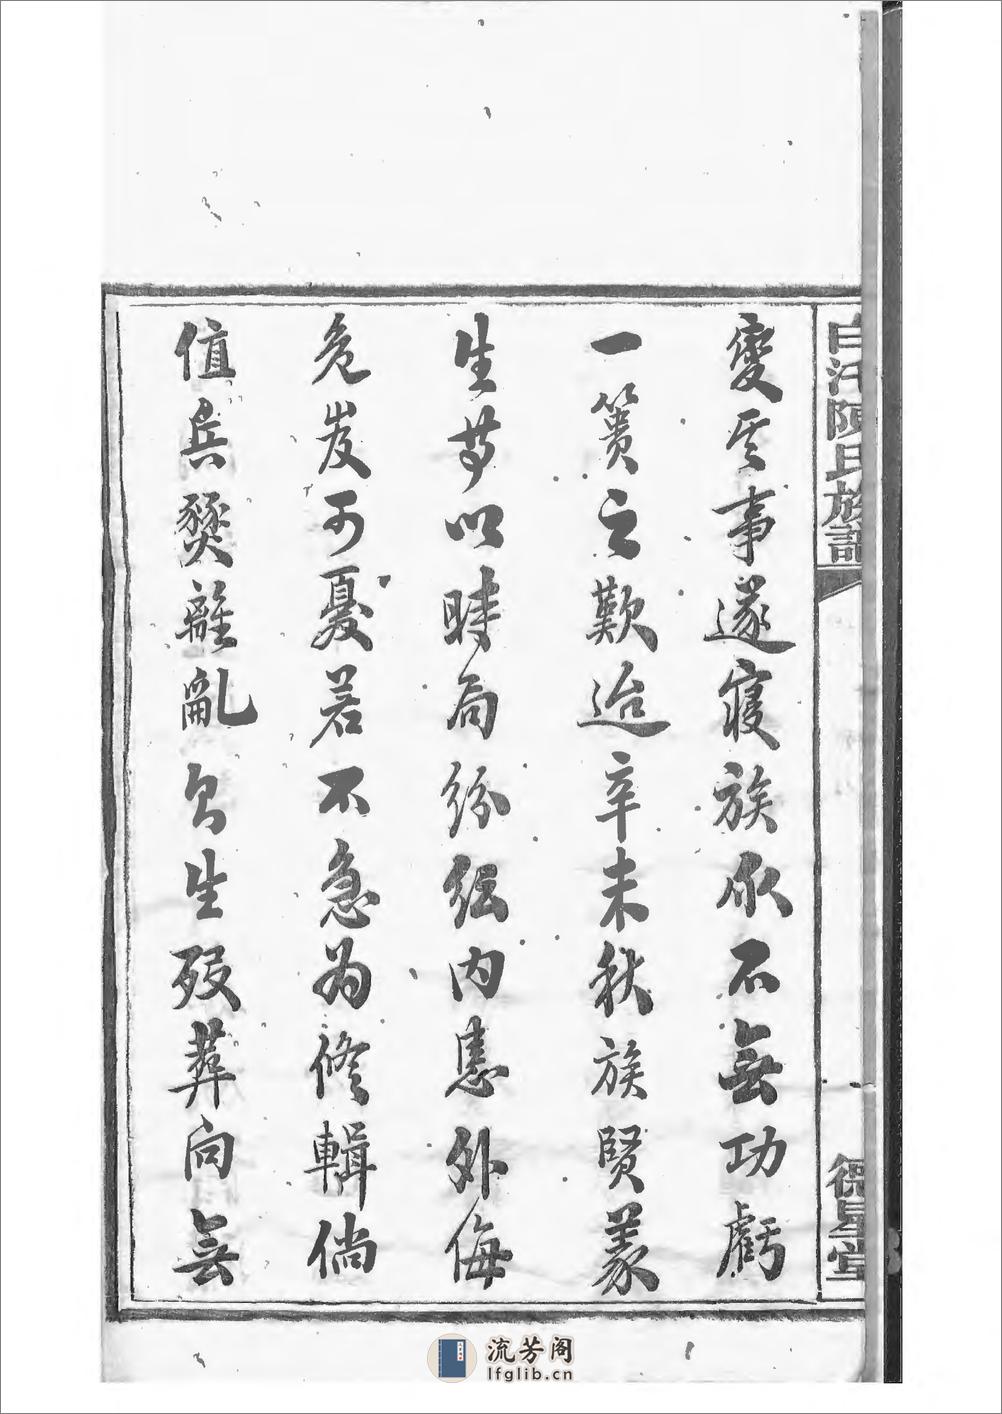 白汧陳氏族譜
德星堂
變云事遂寢族㐺不無功虧
一簣之歎迨辛未秋族賢義
生等以時局紛紜內患外侮
危岌可憂若不急為修輯倘
值兵燹離亂則生殁葬向無
流芳阁
lfglib.cn